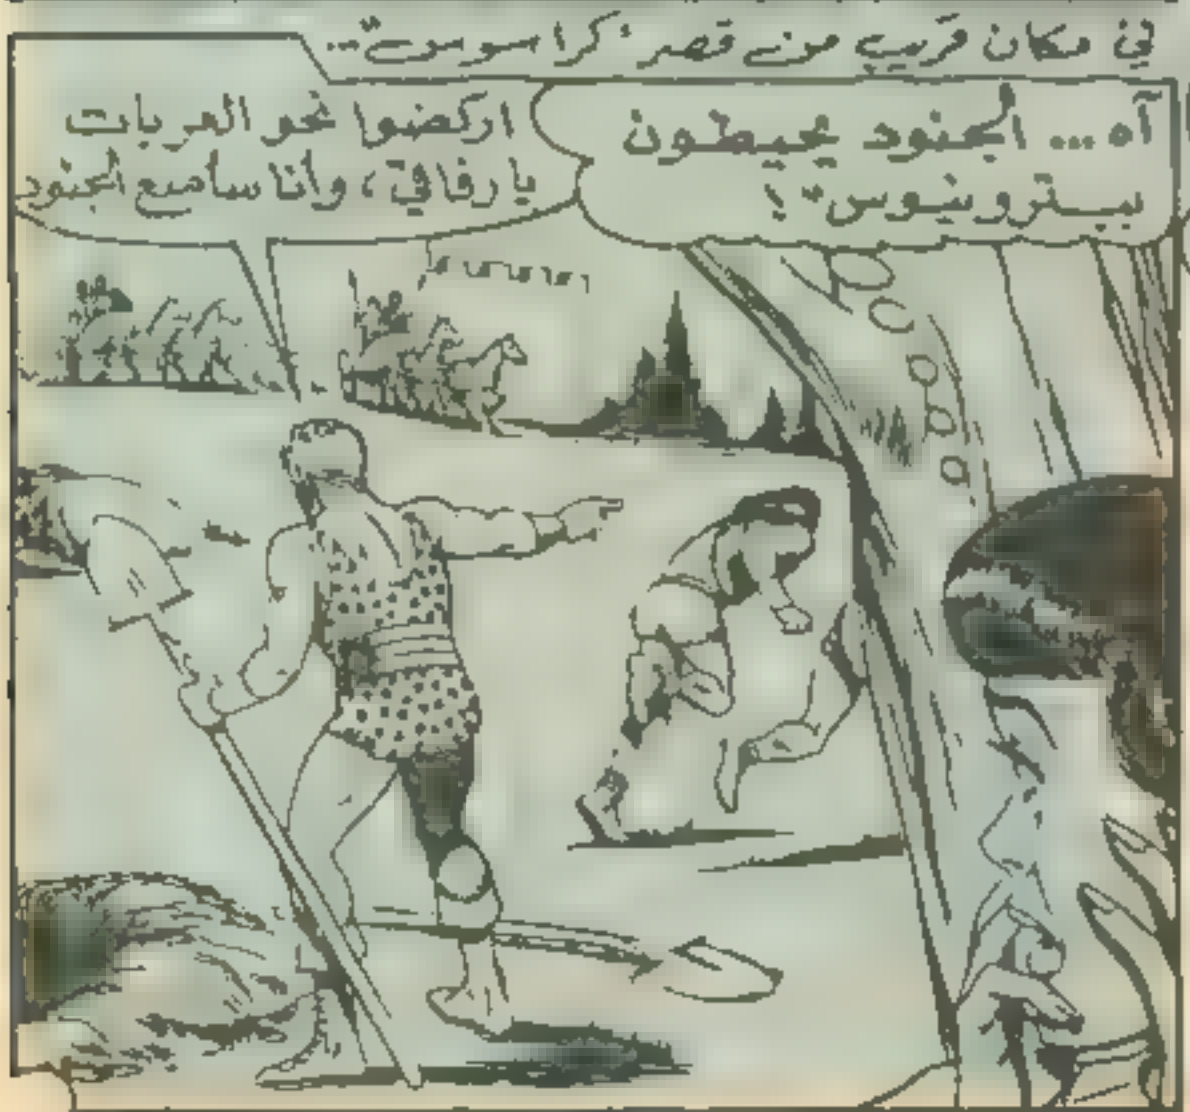 في مكان قريب من قصر "كراسوس"...
آه... الجنود يحيطون
ببترونيوس"؟!
اركضوا نحو العربات
يا رفاقي، وأنا سأمنع الجنود